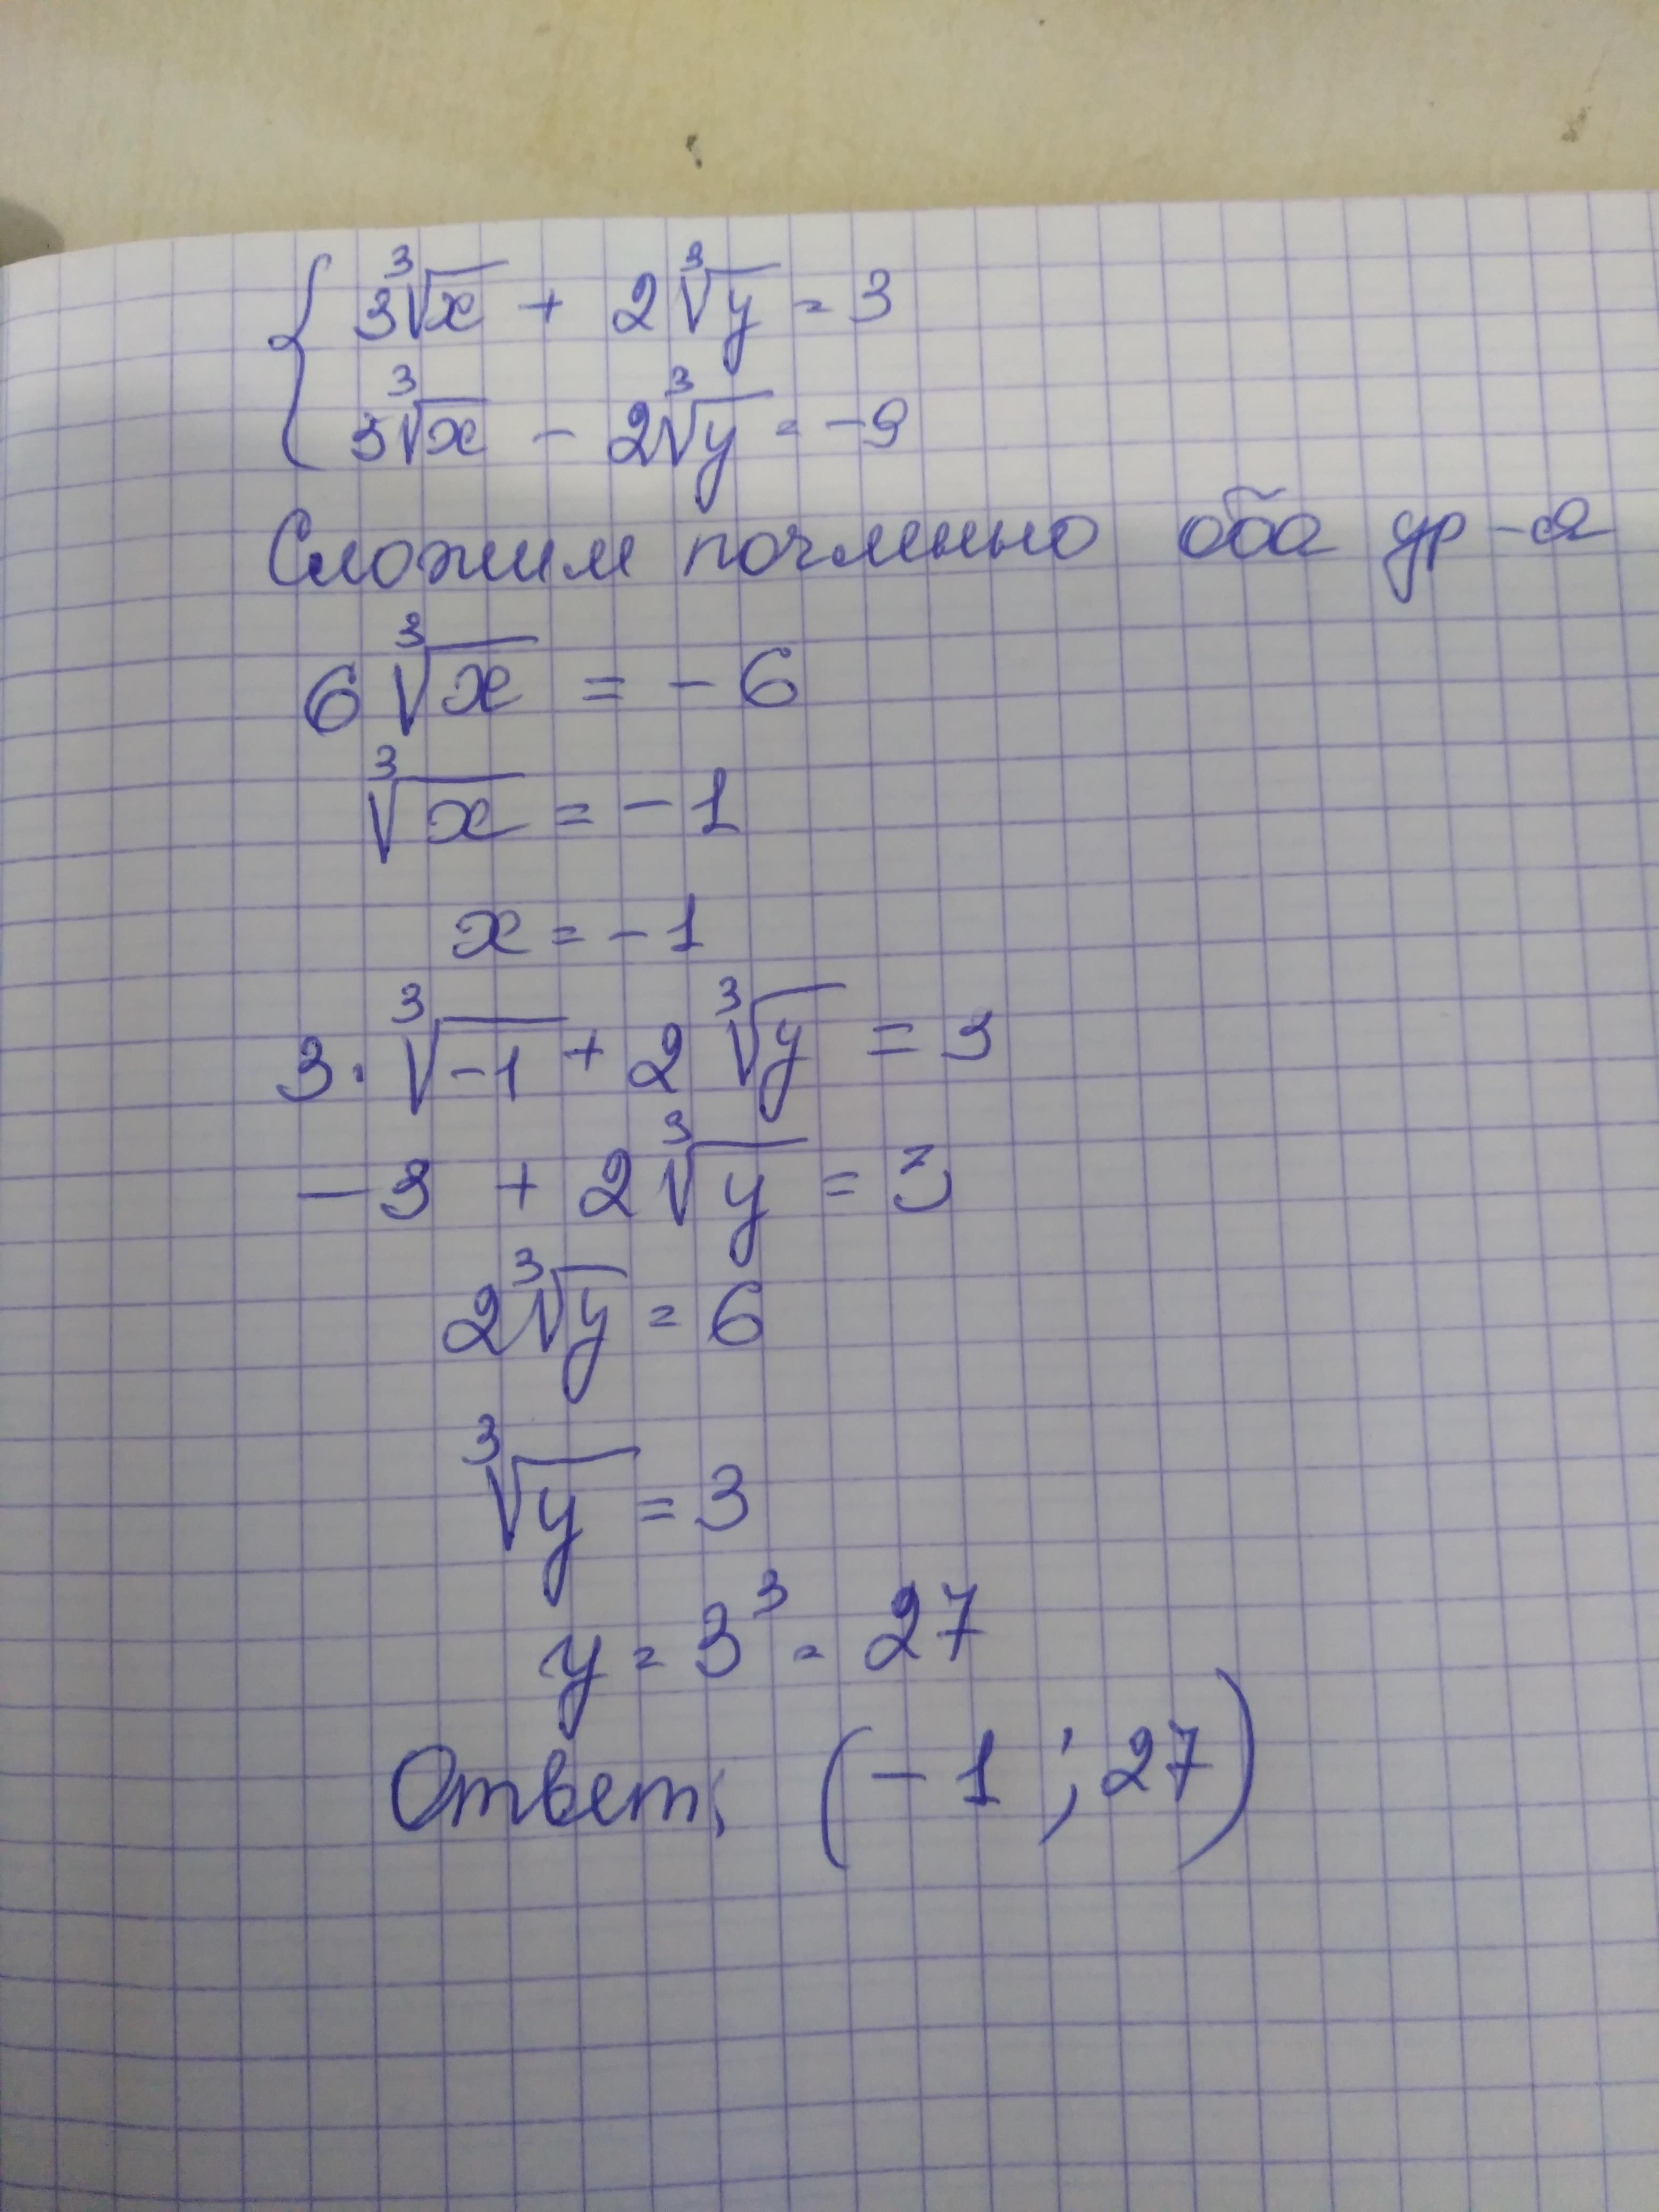 3∛x + 2∛y = 3
3∛x - 2∛y = -9
Сложим почленно оба ур-я
6∛x = -6
∛x = -1
x = -1
3·∛-1 + 2∛y = 3
-3 + 2∛y = 3
2∛y = 6
∛y = 3
y = 3³ = 27
Ответ: (-1; 27)